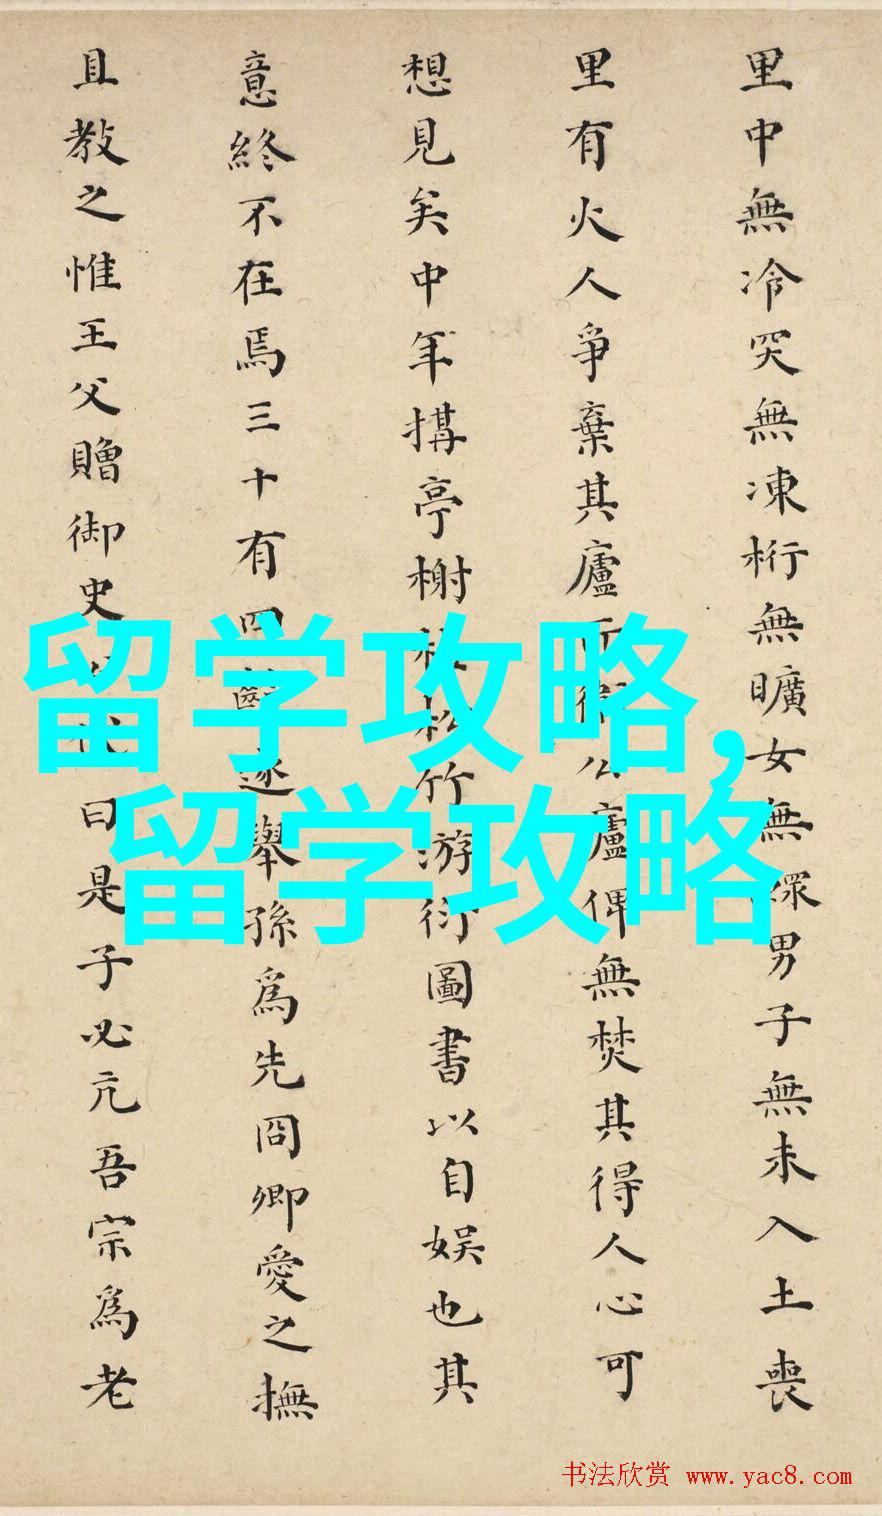 里中無冷突無凍桁無曠女無鰥男子無未入土喪
里有火人爭棄其廬而衛公廬俾無焚其得人心可
想見矣中年搆亭榭植松竹游衍圖書以自娛也其
意終不在焉三十有四遂舉孫爲先冏卿愛之撫
且教之惟王父贈御史曰是子必亢吾宗爲老
留学攻略,
留学攻略
书法欣赏 www.yac8.com